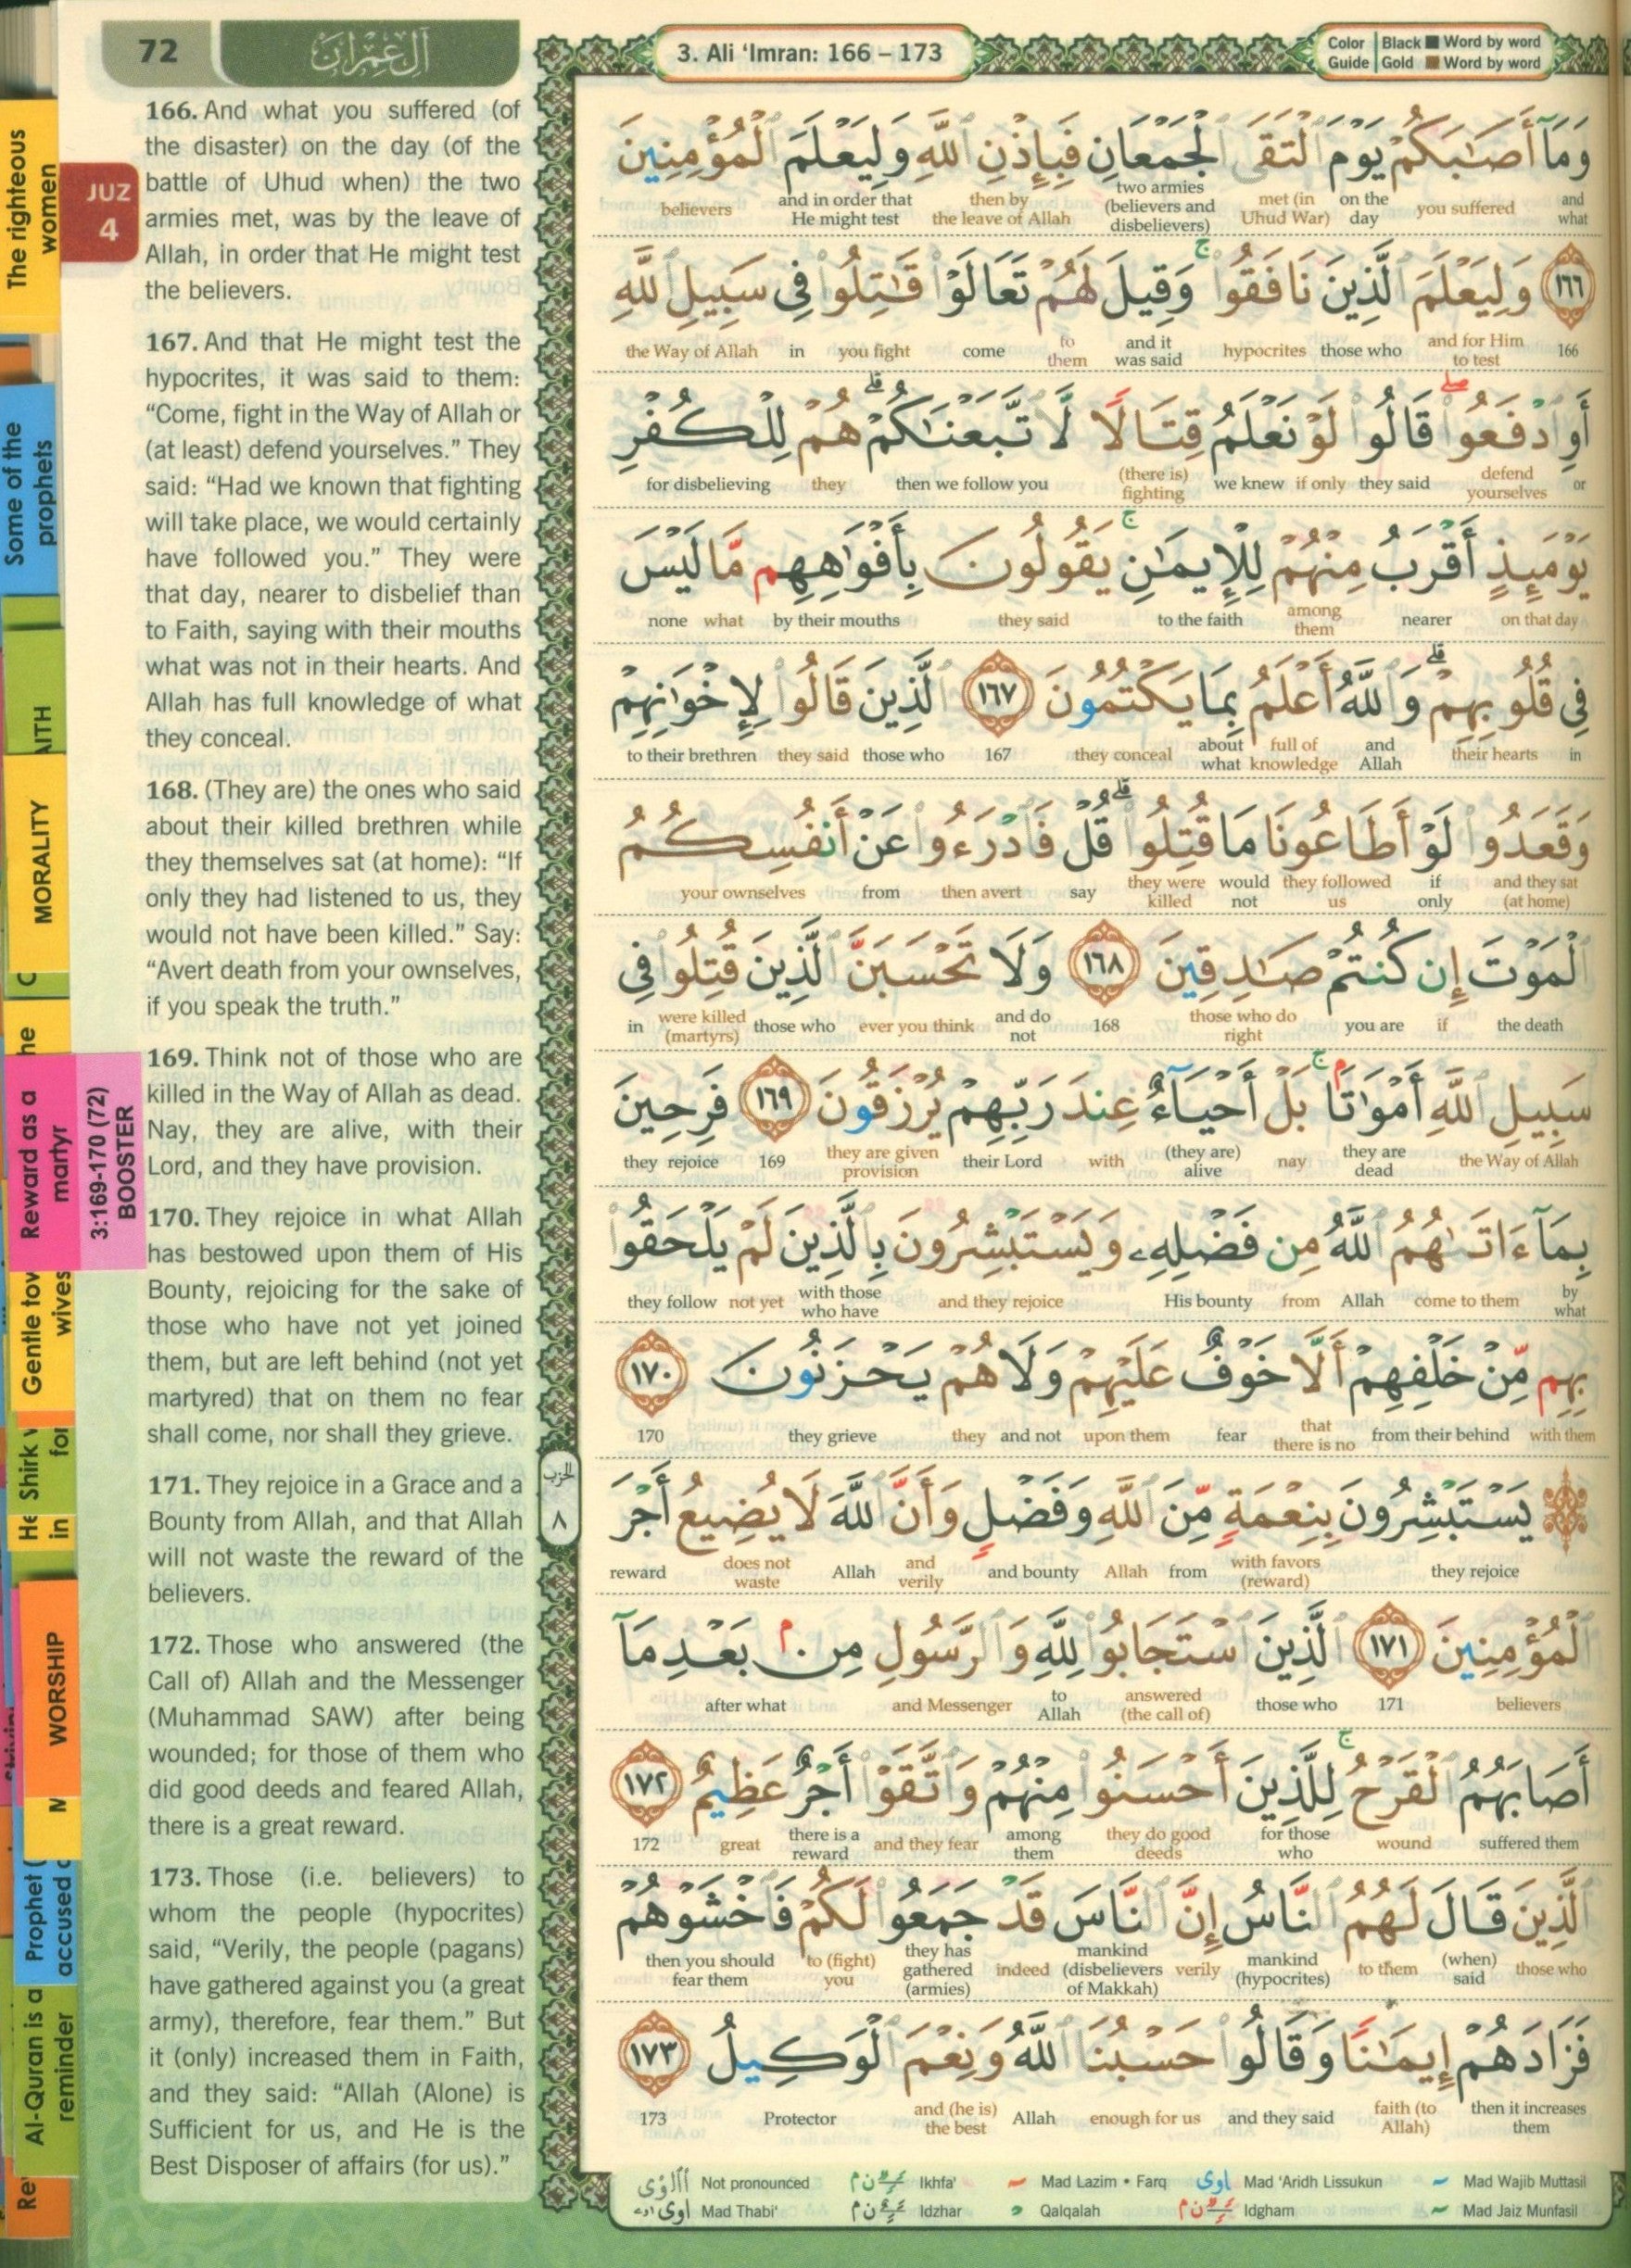 72
آل عمران
3. Ali ‘Imran: 166 – 173
Color Guide
Black ■ Word by word
Gold ■ Word by word
166. And what you suffered (of
the disaster) on the day (of the
battle of Uhud when) the two
armies met, was by the leave of
Allah, in order that He might test
the believers.
167. And that He might test the
hypocrites, it was said to them:
“Come, fight in the Way of Allah or
(at least) defend yourselves.” They
said: “Had we known that fighting
will take place, we would certainly
have followed you.” They were
that day, nearer to disbelief than
to Faith, saying with their mouths
what was not in their hearts. And
Allah has full knowledge of what
they conceal.
168. (They are) the ones who said
about their killed brethren while
they themselves sat (at home): “If
only they had listened to us, they
would not have been killed.” Say:
“Avert death from your ownselves,
if you speak the truth.”
169. Think not of those who are
killed in the Way of Allah as dead.
Nay, they are alive, with their
Lord, and they have provision.
170. They rejoice in what Allah
has bestowed upon them of His
Bounty, rejoicing for the sake of
those who have not yet joined
them, but are left behind (not yet
martyred) that on them no fear
shall come, nor shall they grieve.
171. They rejoice in a Grace and a
Bounty from Allah, and that Allah
will not waste the reward of the
believers.
172. Those who answered (the
Call of) Allah and the Messenger
(Muhammad SAW) after being
wounded; for those of them who
did good deeds and feared Allah,
there is a great reward.
173. Those (i.e. believers) to
whom the people (hypocrites)
said, “Verily, the people (pagans)
have gathered against you (a great
army), therefore, fear them.” But
it (only) increased them in Faith,
and they said: “Allah (Alone) is
Sufficient for us, and He is the
Best Disposer of affairs (for us).”
وَمَآ أَصَٰبَكُمْ يَوْمَ ٱلْتَقَى ٱلْجَمْعَانِ فَبِإِذْنِ ٱللَّهِ وَلِيَعْلَمَ ٱلْمُؤْمِنِينَ
believers and in order that He might test then by the leave of Allah two armies (believers and disbelievers) met (in Uhud War) on the day you suffered and what
١٦٦ وَلِيَعْلَمَ ٱلَّذِينَ نَافَقُوا۟ ۚ وَقِيلَ لَهُمْ تَعَالَوْا۟ قَٰتِلُوا۟ فِى سَبِيلِ ٱللَّهِ
the Way of Allah in you fight come to them and it was said hypocrites those who and for Him to test 166
أَوِ ٱدْفَعُوا۟ ۖ قَالُوا۟ لَوْ نَعْلَمُ قِتَالًا لَّٱتَّبَعْنَٰكُمْ ۗ هُمْ لِلْكُفْرِ
for disbelieving they then we follow you (there is) fighting we knew if only they said defend yourselves or
يَوْمَئِذٍ أَقْرَبُ مِنْهُمْ لِلْإِيمَٰنِ ۚ يَقُولُونَ بِأَفْوَٰهِهِم مَّا لَيْسَ
none what by their mouths they said to the faith among them nearer on that day
فِى قُلُوبِهِمْ ۗ وَٱللَّهُ أَعْلَمُ بِمَا يَكْتُمُونَ ١٦٧ ٱلَّذِينَ قَالُوا۟ لِإِخْوَٰنِهِمْ
to their brethren they said those who 167 they conceal about what full of knowledge and Allah their hearts in
وَقَعَدُوا۟ لَوْ أَطَاعُونَا مَا قُتِلُوا۟ ۗ قُلْ فَٱدْرَءُوا۟ عَنْ أَنفُسِكُمُ
your ownselves from then avert say they were killed would not they followed us if only and they sat (at home)
ٱلْمَوْتَ إِن كُنتُمْ صَٰدِقِينَ ١٦٨ وَلَا تَحْسَبَنَّ ٱلَّذِينَ قُتِلُوا۟ فِى
in were killed (martyrs) those who ever you think and do not 168 those who do right you are if the death
سَبِيلِ ٱللَّهِ أَمْوَٰتًۢا ۚ بَلْ أَحْيَآءٌ عِندَ رَبِّهِمْ يُرْزَقُونَ ١٦٩ فَرِحِينَ
they rejoice 169 they are given provision their Lord with (they are) alive nay they are dead the Way of Allah
بِمَآ ءَاتَىٰهُمُ ٱللَّهُ مِن فَضْلِهِۦ وَيَسْتَبْشِرُونَ بِٱلَّذِينَ لَمْ يَلْحَقُوا۟
they follow not yet with those who have and they rejoice His bounty from Allah come to them by what
بِهِم مِّنْ خَلْفِهِمْ أَلَّا خَوْفٌ عَلَيْهِمْ وَلَا هُمْ يَحْزَنُونَ ١٧٠
170 they grieve they and not upon them fear that there is no from their behind with them
الحزب ٨
يَسْتَبْشِرُونَ بِنِعْمَةٍ مِّنَ ٱللَّهِ وَفَضْلٍ وَأَنَّ ٱللَّهَ لَا يُضِيعُ أَجْرَ
reward does not waste Allah and verily and bounty Allah from with favors (reward) they rejoice
ٱلْمُؤْمِنِينَ ١٧١ ٱلَّذِينَ ٱسْتَجَابُوا۟ لِلَّهِ وَٱلرَّسُولِ مِنۢ بَعْدِ مَآ
after what and Messenger to Allah answered (the call of) those who 171 believers
أَصَابَهُمُ ٱلْقَرْحُ ۚ لِلَّذِينَ أَحْسَنُوا۟ مِنْهُمْ وَٱتَّقَوْا۟ أَجْرٌ عَظِيمٌ ١٧٢
172 great there is a reward and they fear among them they do good deeds for those who wound suffered them
ٱلَّذِينَ قَالَ لَهُمُ ٱلنَّاسُ إِنَّ ٱلنَّاسَ قَدْ جَمَعُوا۟ لَكُمْ فَٱخْشَوْهُمْ
then you should fear them to (fight) you they has gathered (armies) indeed mankind (disbelievers of Makkah) verily mankind (hypocrites) to them (when) said those who
فَزَادَهُمْ إِيمَٰنًا وَقَالُوا۟ حَسْبُنَا ٱللَّهُ وَنِعْمَ ٱلْوَكِيلُ ١٧٣
173 Protector and (he is) the best Allah enough for us and they said faith (to Allah) then it increases them
Not pronounced
Ikhfa'
Mad Lazim • Farq
Mad 'Aridh Lissukun
Mad Wajib Muttasil
Mad Thabi'
Idzhar
Qalqalah
Idgham
Mad Jaiz Munfasil
The righteous women
JUZ 4
Some of the prophets
AITH
MORALITY
Reward as a martyr
3:169-170 (72) BOOSTER
Gentle tow
wives
Shirk
WORSHIP
Prophet (
accused
Al-Quran is a reminder